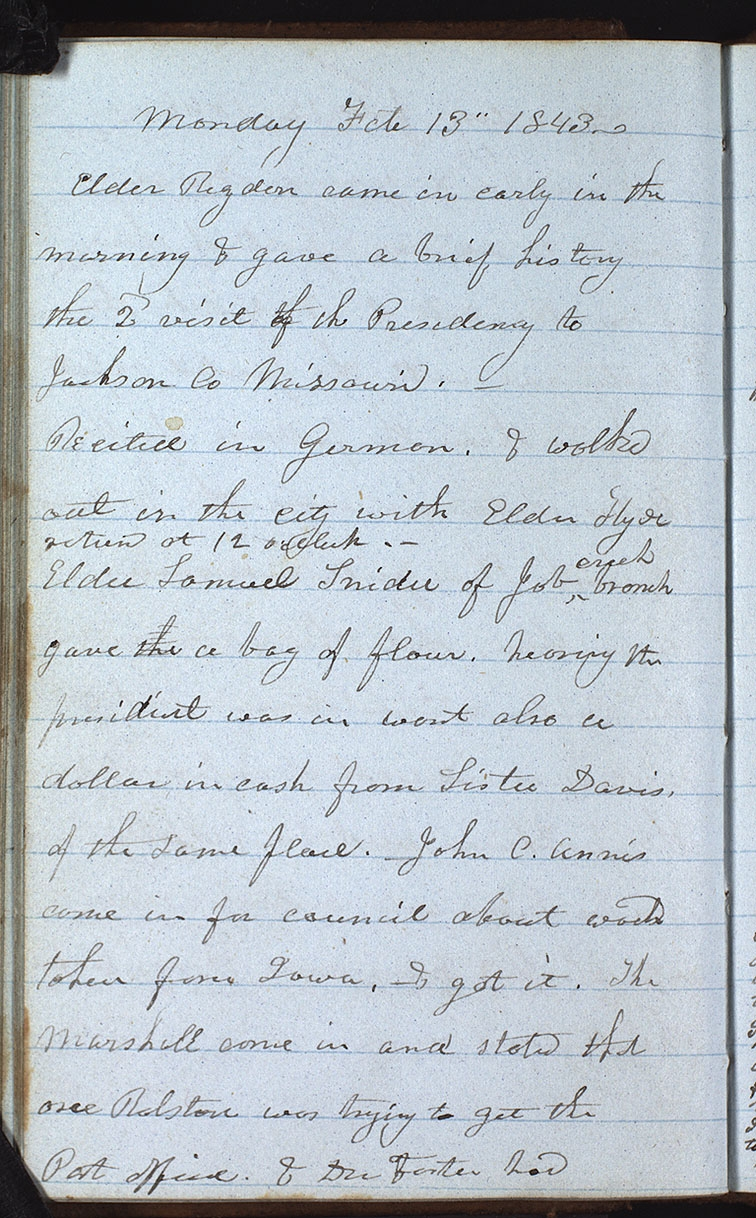 Monday Feb 13" 1843
Elder Rigdon came in early in the
morning & gave a brief history
the 2d visit of th Presidency to
Jackson Co Missouri. —
Recited in German. & walked
out in the city with Elder Hyde
return at 12 oclock. —
Elder Samuel Snider of Job creek branch
gave the a bag of flour. hearing the
president was in want also a
dollar in cash from Sister Davis.
of the same place. John C. Annis
come in for council about wood
taken from Iowa. & got it. The
Marshall come in and stated that
one Ralston was trying to get the
Post office. & Dr Foster had